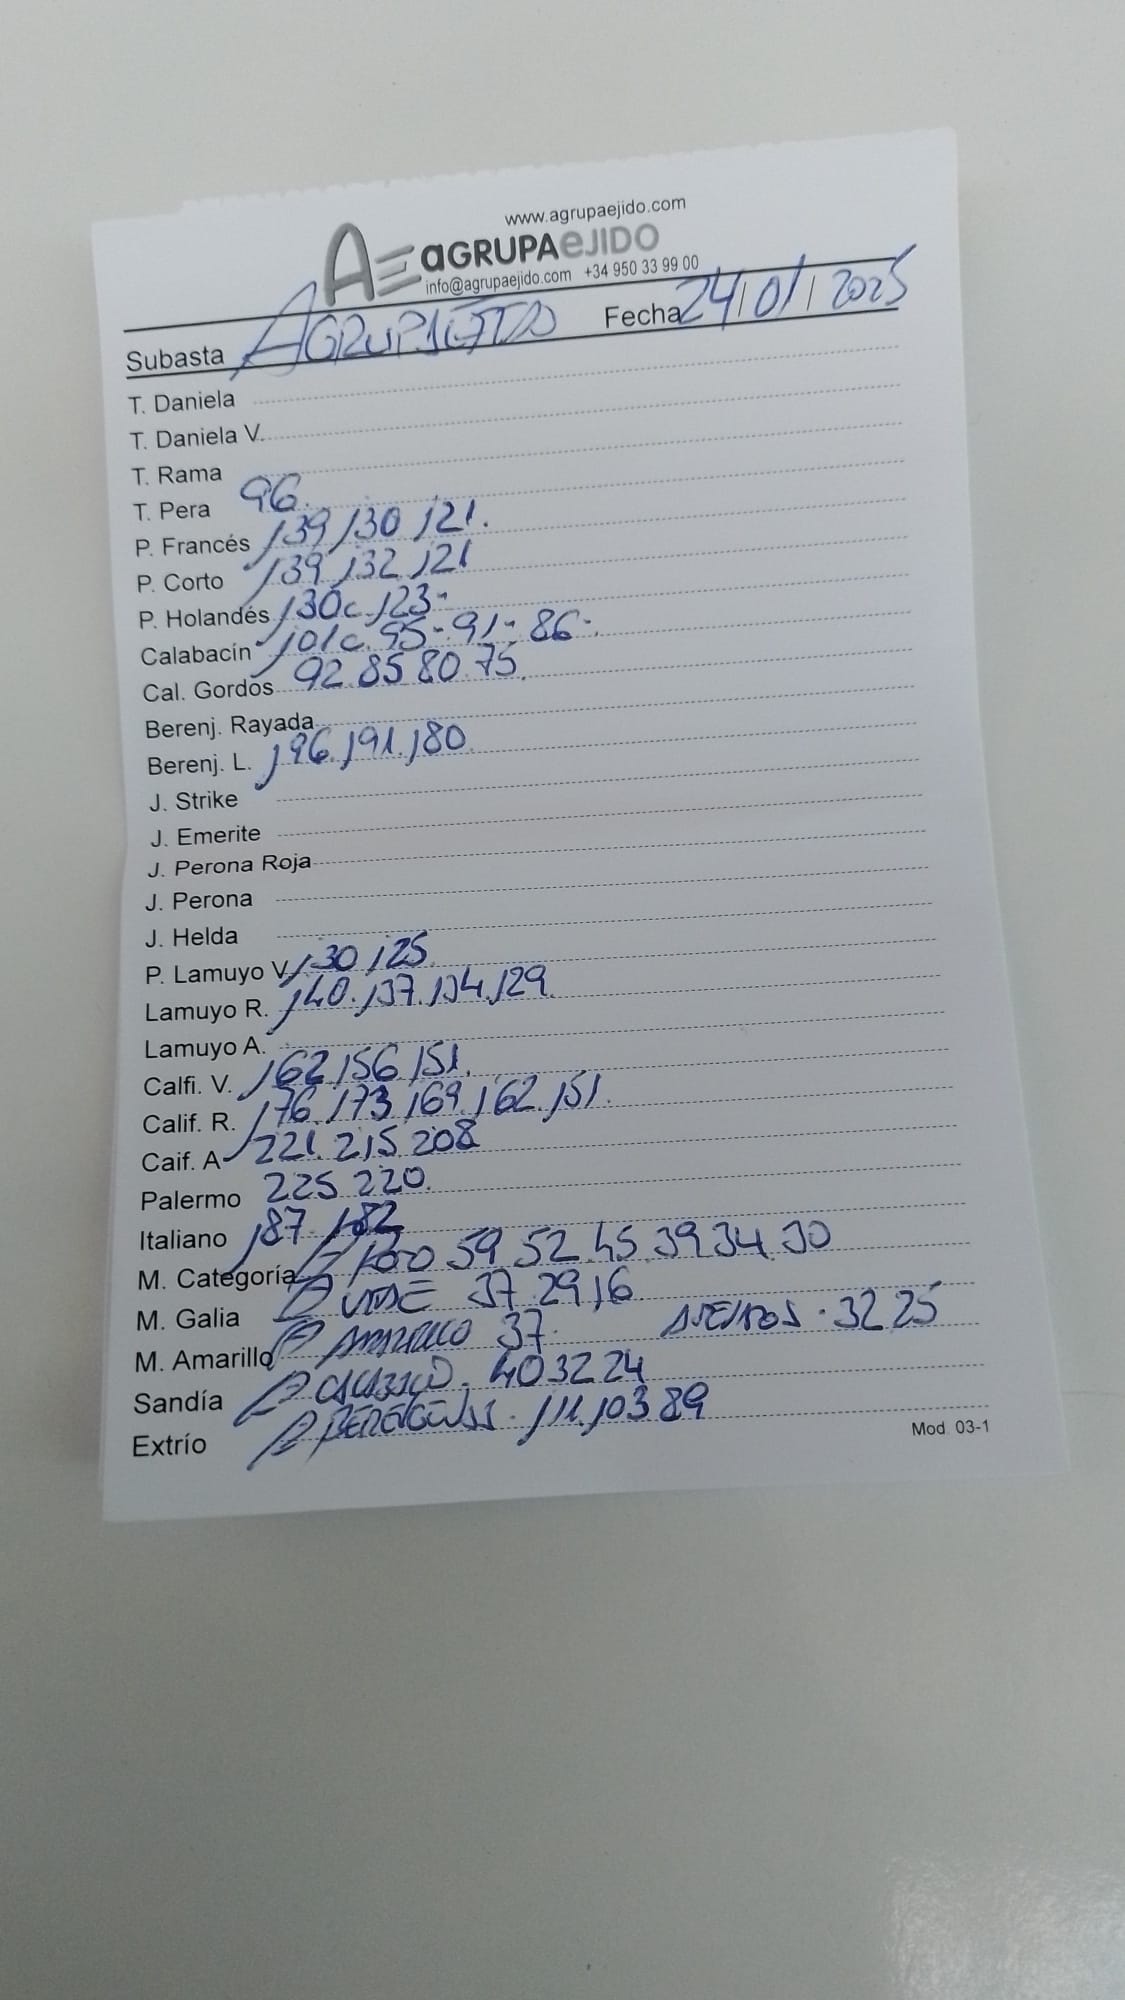 www.agrupaejido.com
AE aGRUPAeJIDO
info@agrupaejido.com +34 950 33 99 00
Subasta AGRUPAEJIDO Fecha 24/01/2025
T. Daniela
T. Daniela V.
T. Rama
T. Pera 96.
P. Francés 139 130 121.
P. Corto 139 132 121
P. Holandés 130c 123-
Calabacín 101c. 95-. 91-. 86-.
Cal. Gordos 92. 85 80. 75.
Berenj. Rayada
Berenj. L. 196. 191. 180.
J. Strike
J. Emerite
J. Perona Roja
J. Perona
J. Helda
P. Lamuyo V. 130 125.
Lamuyo R. 140. 137. 134. 129.
Lamuyo A.
Calfi. V. 162 156 151.
Calif. R. 176. 173 169. 162. 151.
Caif. A 221. 215 208
Palermo 225 220.
Italiano 187 182
M. Categoría P ROJO 59 52. 45. 39 34. 30
M. Galia P VERDE 37. 29 16
M. Amarillo P AMARILLO 37. 32 25
Sandía P CALABACIN. 40 32 24
Extrío P BERENGENAS. 111. 103 89
Mod. 03-1